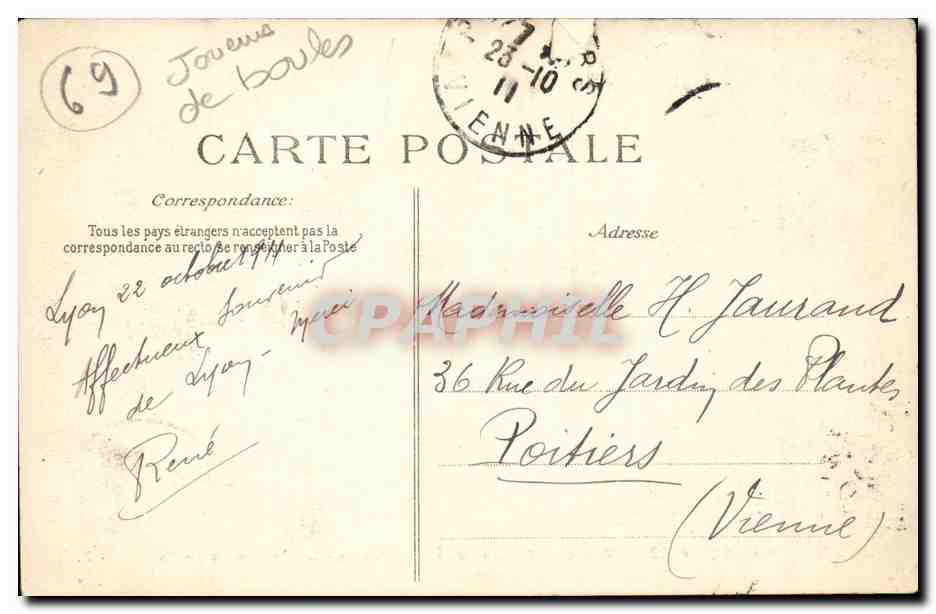 69
Joueurs
de boules
23-10
11
VIENNE
CARTE POSTALE
Correspondance:
Tous les pays étrangers n'acceptent pas la
correspondance au recto, se renseigner à la Poste
Lyon 22 octobre 1911
Affectueux souvenir
de Lyon - merci
René
CPAPHIL
Adresse
Mademoiselle H. Jaurand
36 Rue du Jardin des Plantes
Poitiers
(Vienne)